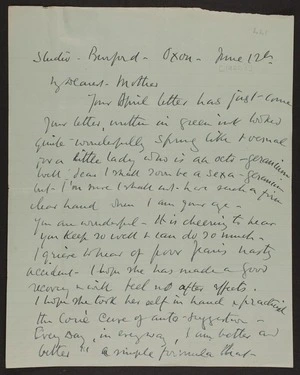 Studio - Burford - Oxon - June 12th
My Dearest - Mother
Your April letter has just come
Your letter, written in green ink looked
quite wonderfully Spring like & vernal
for a little lady who is an octo-geranium
well - dear I shall soon be a sexa-geranium
but - I'm sure I shall not - have such a firm
clear hand when I am your age -
You are wonderful - It is cheering to hear
You keep so well & can do so much -
I grieve to hear of poor Jean's nasty
accident - I hope she has made a good
recovery with no after effects.
I hope she took her self in hand & practised
the Coué Cure of auto-suggestion -
Every Day, in every way, I am better and
better" a simple formula that -